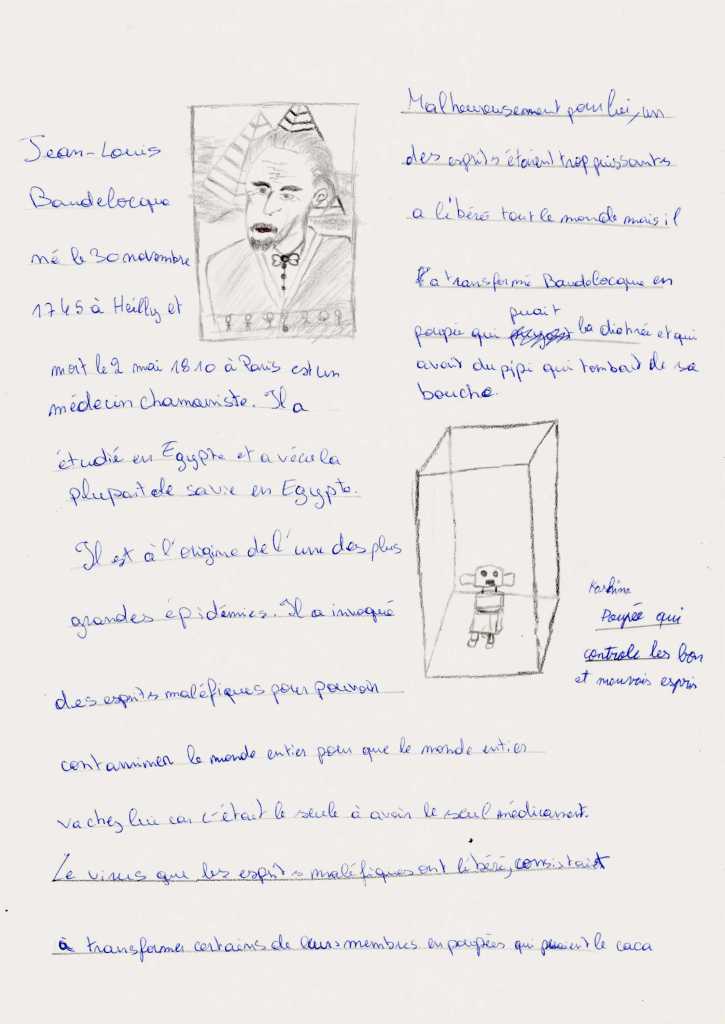 Jean-Louis
Baudelocque
né le 30 novembre
1745 à Heilly et
mort le 2 mai 1810 à Paris est un
médecin chamaniste. Il a
étudié en Egypte et a vécu la
plupart de sa vie en Egypte.
Il est à l'origine de l'une des plus
grandes épidémies. Il a invoqué
des esprits maléfiques pour pouvoir
contaminer le monde entier pour que le monde entier
va chez lui car c'était le seule à avoir le seul médicament.
Le virus que les esprits maléfiques ont libéré, consistait
à transformer certains de leurs membres en poupées qui puaient le caca
Malheureusement pour lui, un
des esprits étaient trop puissants
a libéré tout le monde mais il
l'a transformé Baudelocque en
puait
poupée qui la diarhée et qui
avait du pipi qui tombait de sa
bouche.
Poupée qui
controle les bon
et mauvais espris